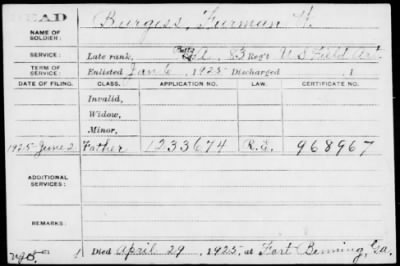 DEAD
NAME OF SOLDIER: Burgess, Furman W.
SERVICE: Late rank, Batty A, 83 Reg't U S Field Art.
TERM OF SERVICE: Enlisted Jan 6, 1925 Discharged , 1
DATE OF FILING. CLASS. APPLICATION NO. LAW. CERTIFICATE NO.
Invalid,
Widow,
Minor,
1925 June 2 Father 1233674 968967
ADDITIONAL SERVICES:
REMARKS:
Died April 29, 1925, at Fort Benning, Ga.